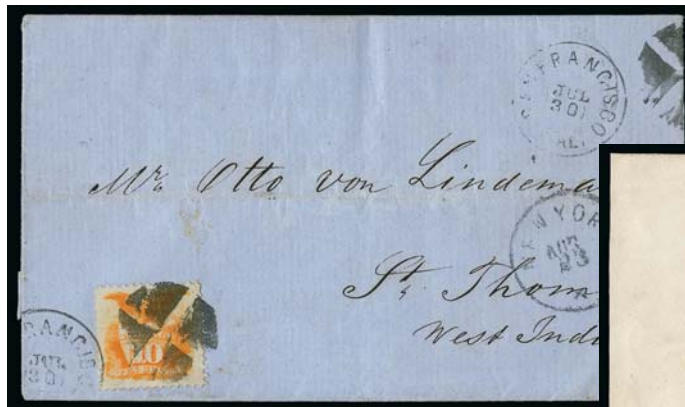 SAN FRANCISCO
JUL
30
CAL.
Mr. Otto von Lindema
NEW YOR
AUG
23
St. Thom
West Indi
RANCISC
JUL
30
10